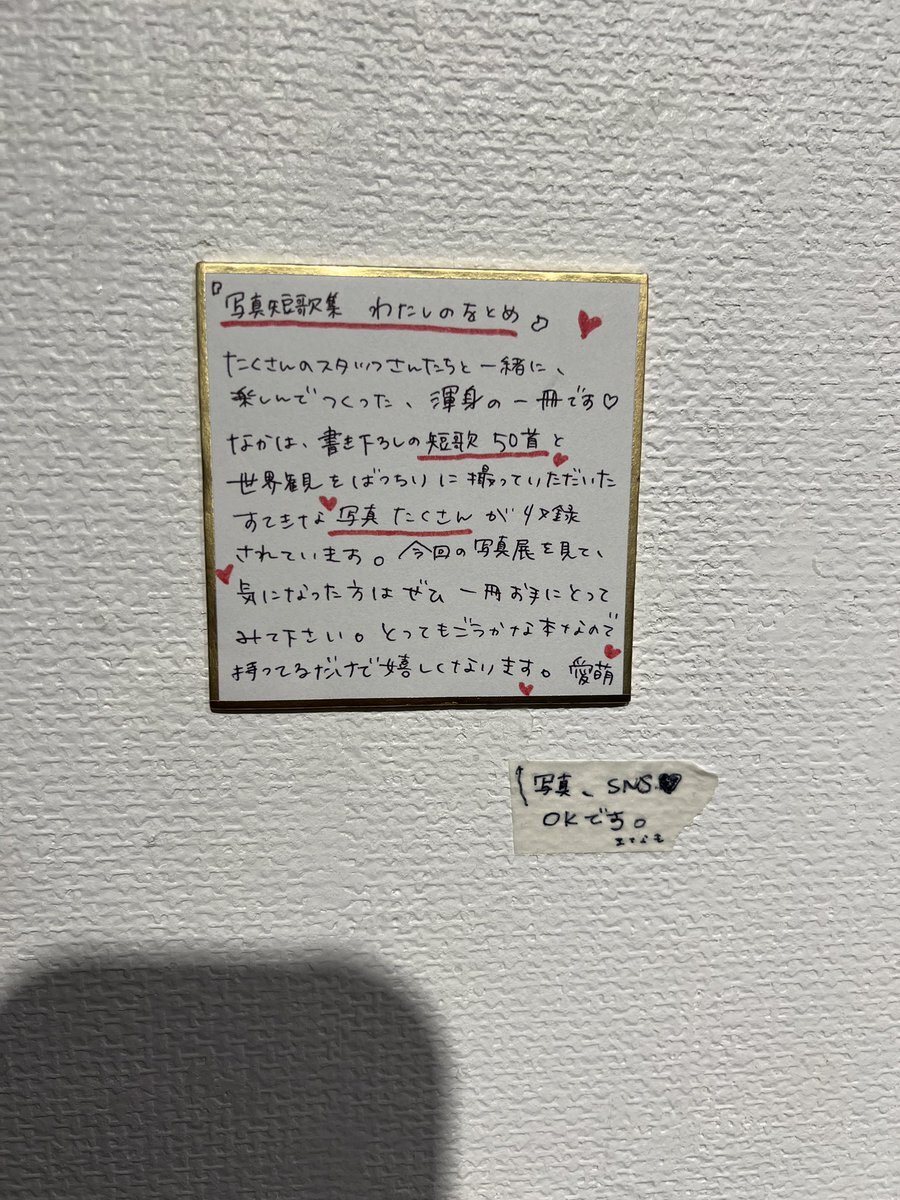 『写真短歌集 わたしのをとめ』
たくさんのスタッフさんたちと一緒に、
楽しんでつくった、渾身の一冊です♡
なかは、書き下ろしの短歌50首と
世界観をばっちりに撮っていただいた
すてきな写真たくさんが収録
されています。今回の写真展を見て、
気になった方はぜひ一冊お手にとって
みて下さい。とってもごうかな本なので
持ってるだけで嬉しくなります。愛萌
写真、SNS♥
OKです。